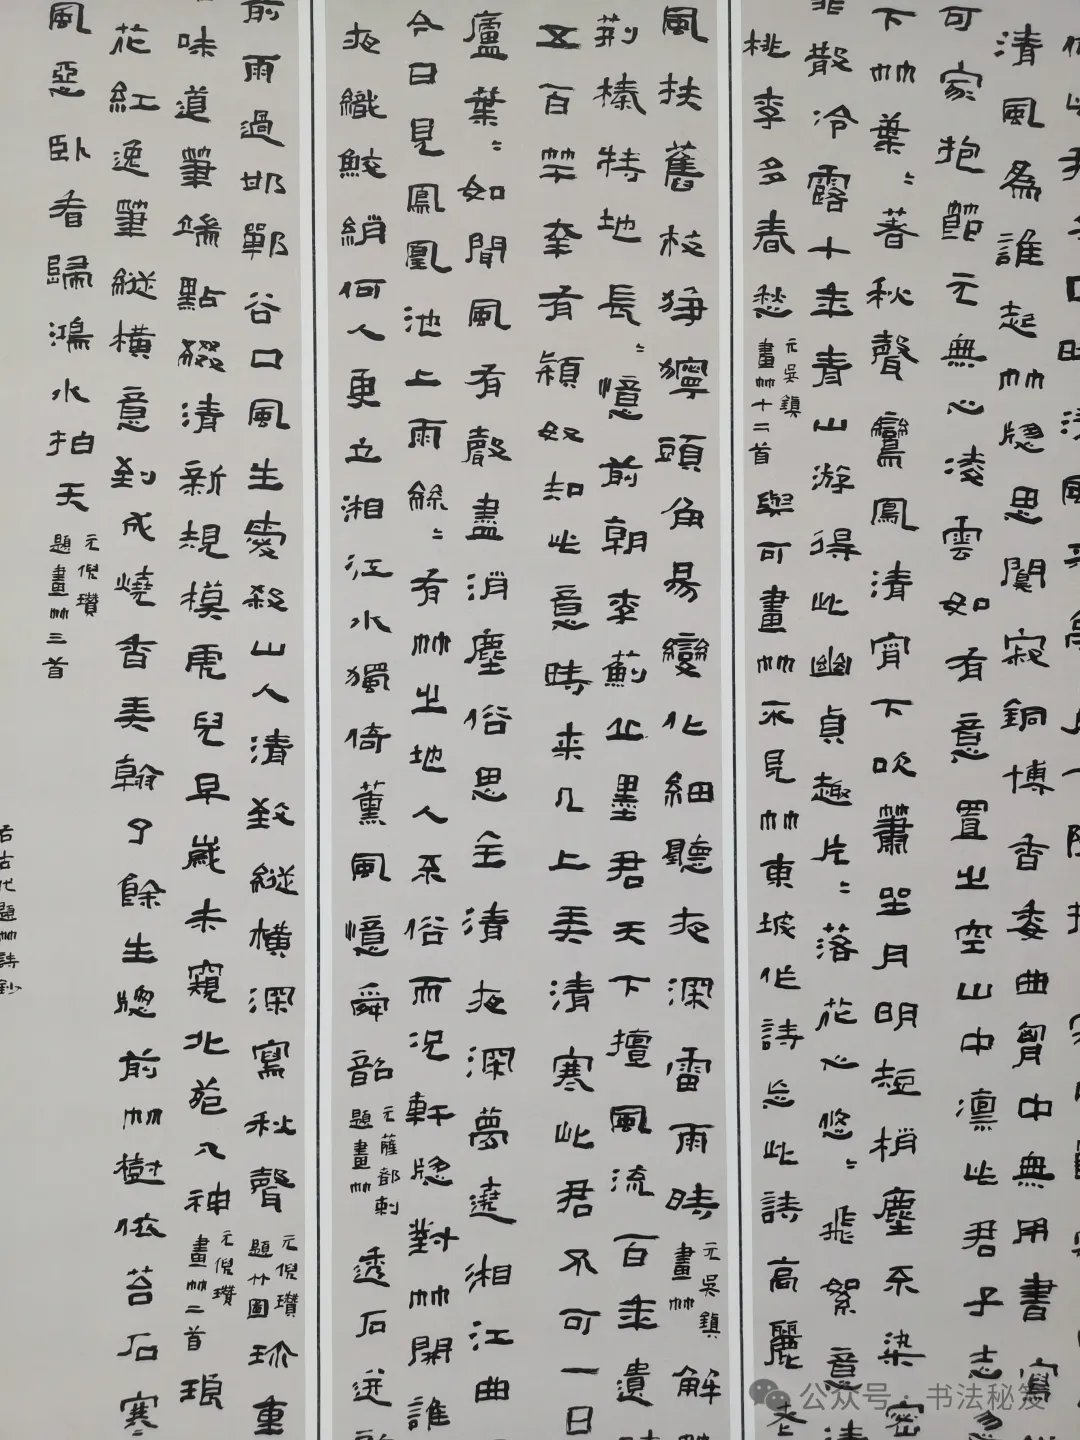 清風為誰起竹窗思闃寂銅博香委曲胷中無用書寫
可家抱節元無心凌雲如有意置之空山中凛此君子志
下竹葉〻著秋聲鸞鳳清宵下吹簫坐月明短梢塵不染密
散冷露十年青山游得此幽貞趣片〻落花心悠〻飛絮意清
桃李多春愁 元吳鎮畫竹十二首 與可畫竹不見竹東坡作詩忘此詩高麗老
風扶舊枝猙獰頭角易變化細聽夜深雷雨時 元吳鎮畫竹 解
荊榛特地長〻憶前朝李薊丘墨君天下擅風流百年遺
五百竿奎有穎奴知此意時来几上美清寒此君不可一日
廬葉〻如聞風有聲盡消塵俗思全清夜深夢遶湘江曲
今日見鳳凰池上雨餘〻有竹之地人不俗而況軒窗對竹開誰
夜織鮫綃何人更立湘江水獨倚薰風憶舜韶 元薩都剌題畫竹 透石迸
前雨過邯鄲谷口風生愛殺山人清致縱橫深寫秋聲 元倪瓚題竹圖 重
味道筆端點綴清新規模虎兒早歲未窺北苑入神 元倪瓚畫竹二首 琅
花紅逸筆縱橫意到成燒香美翰了餘生窗前竹樹依苔石寒
風惡卧看歸鴻水拍天 元倪瓚題畫竹三首
右古代題竹詩鈔
公众号·书法秘笈